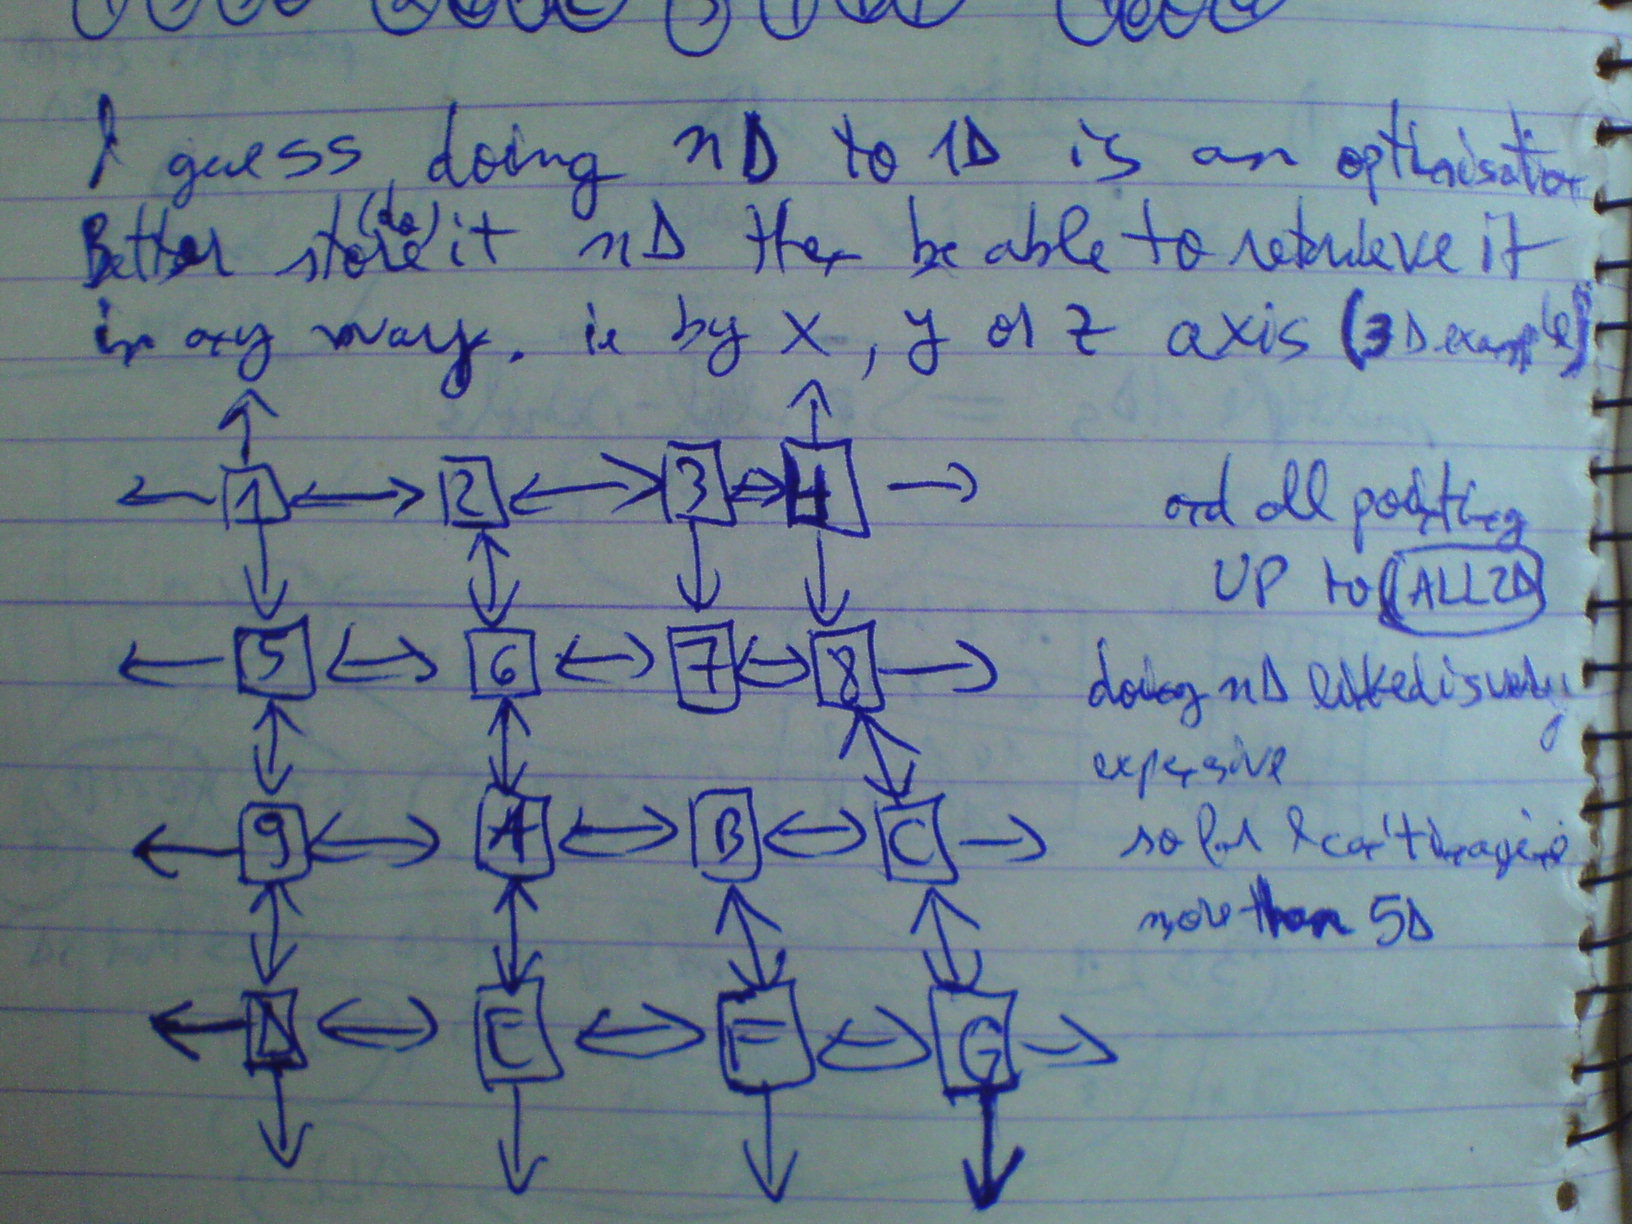 I guess doing nD to 1D is an optimisation
Better store (do) it nD then be able to retrieve it
in any way. ie by x, y or z axis (3D example)
1 2 3 4
and all pointing
UP to ALL2D
5 6 7 8
doing nD linked is very
expensive
9 A B C
so far I can't imagine
more than 5D
D E F G